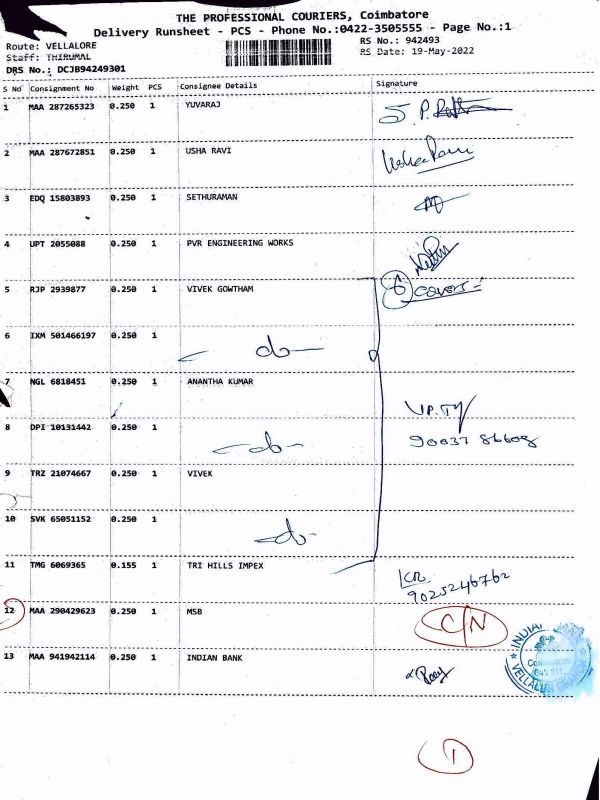 THE PROFESSIONAL COURIERS, Coimbatore
Delivery Runsheet - PCS - Phone No.:0422-3505555 - Page No.:1
Route: VELLALORE
RS No.: 942493
Staff: THIRUMAL
RS Date: 19-May-2022
DRS No.: DCJB94249301
S No Consignment No Weight PCS Consignee Details Signature
1 MAA 287265323 0.250 1 YUVARAJ
2 MAA 287672851 0.250 1 USHA RAVI Usha Ravi
3 EDQ 15803893 0.250 1 SETHURAMAN
4 UPT 2055088 0.250 1 PVR ENGINEERING WORKS
5 RJP 2939877 0.250 1 VIVEK GOWTHAM 6 covers
6 IXM 501466197 0.250 1 do
7 NGL 6818451 0.250 1 ANANTHA KUMAR
8 DPI 10131442 0.250 1 do
9 TRZ 21074667 0.250 1 VIVEK
10 SVK 65051152 0.250 1 do
11 TMG 6069365 0.155 1 TRI HILLS IMPEX
9025246762
12 MAA 290429623 0.250 1 MSB C/N
13 MAA 941942114 0.250 1 INDIAN BANK
1